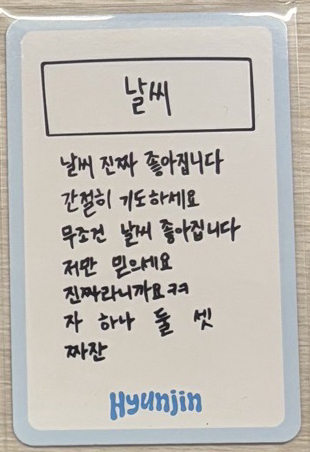 날씨
날씨 진짜 좋아집니다
간절히 기도하세요
무조건 날씨 좋아집니다
저만 믿으세요
진짜라니까요ㅋㅋ
자 하나 둘 셋
짜잔
Hyunjin